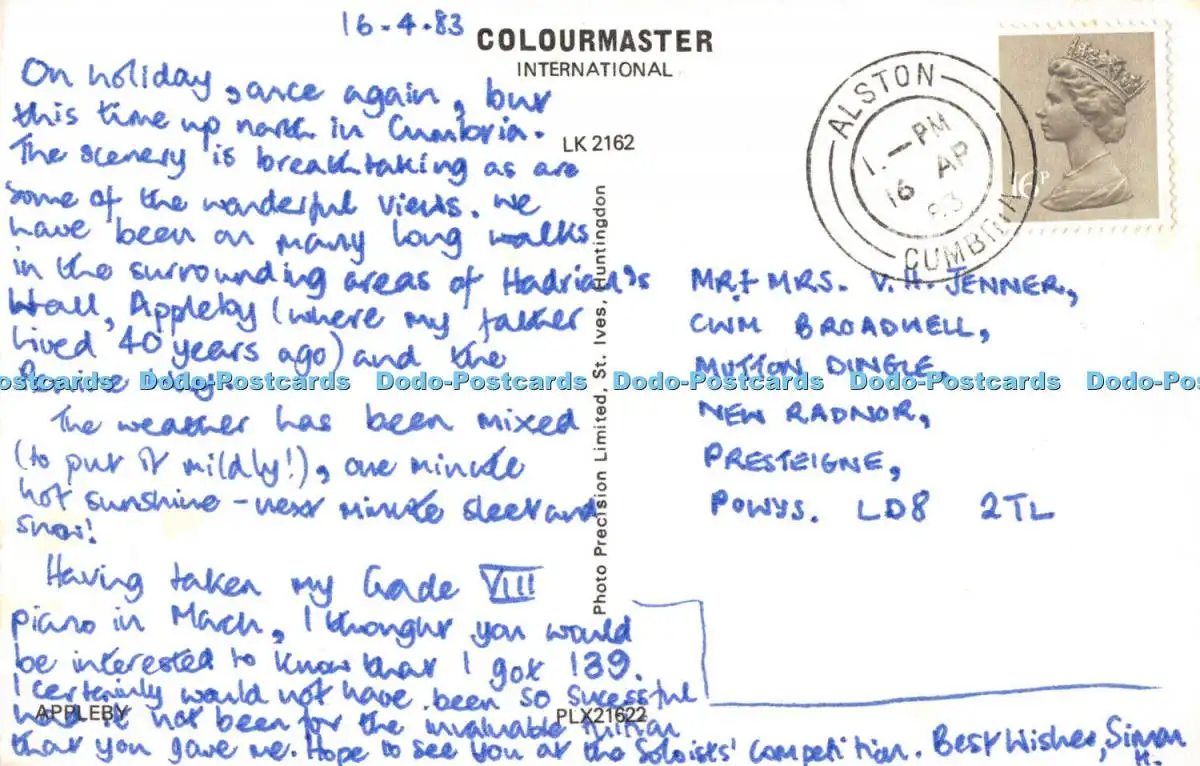 16-4-83
COLOURMASTER
INTERNATIONAL
LK 2162
On holiday, once again, but
this time up north in Cumbria.
The scenery is breathtaking as are
some of the wonderful views. We
have been on many long walks
in the surrounding areas of Hadrian's
Wall, Appleby (where my father
lived 40 years ago) and the
Pennine
The weather has been mixed
(to put it mildly!), one minute
hot sunshine - next minute sleet and
snow!
Having taken my Grade VIII
piano in March, I thought you would
be interested to know that I got 139.
I certainly would not have been so sucessful
had it not been for the invaluable tuition
that you gave me. Hope to see you at the Soloists' Competition. Best Wishes, Simon
H.
APPLEBY
PLX21622
Photo Precision Limited, St. Ives, Huntingdon
ALSTON
1.-PM
16 AP
83
CUMBRIA
16P
MR.+ MRS. V. H. JENNER,
CWM BROADWELL,
MUTTON DINGLE,
NEW RADNOR,
PRESTEIGNE,
POWYS. LD8 2TL
Dodo-Postcards Dodo-Postcards Dodo-Postcards Dodo-Postcards Dodo-Postcards